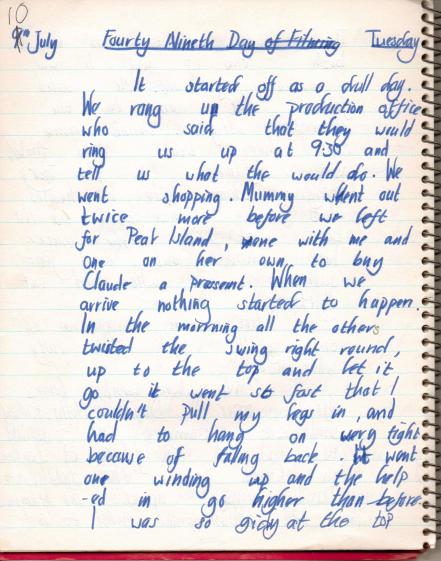 10
9th July Fourty Nineth Day of Filming Tuesday
It started off as a dull day.
We rang up the production office
who said that they would
ring us up at 9:30 and
tell us what the would do. We
went shopping. Mummy when out
twice more before we left
for Peat Island, one with me and
one on her own, to buy
Claude a preasent. When we
arrive nothing started to happen.
In the morrning all the others
twisted the swing right round,
up to the top and let it
go it went so fast that I
couldn't pull my legs in, and
had to hang on very tight
because of falling back. It went
one winding up and the help
-ed in go higher than before.
I was so gidy at the top